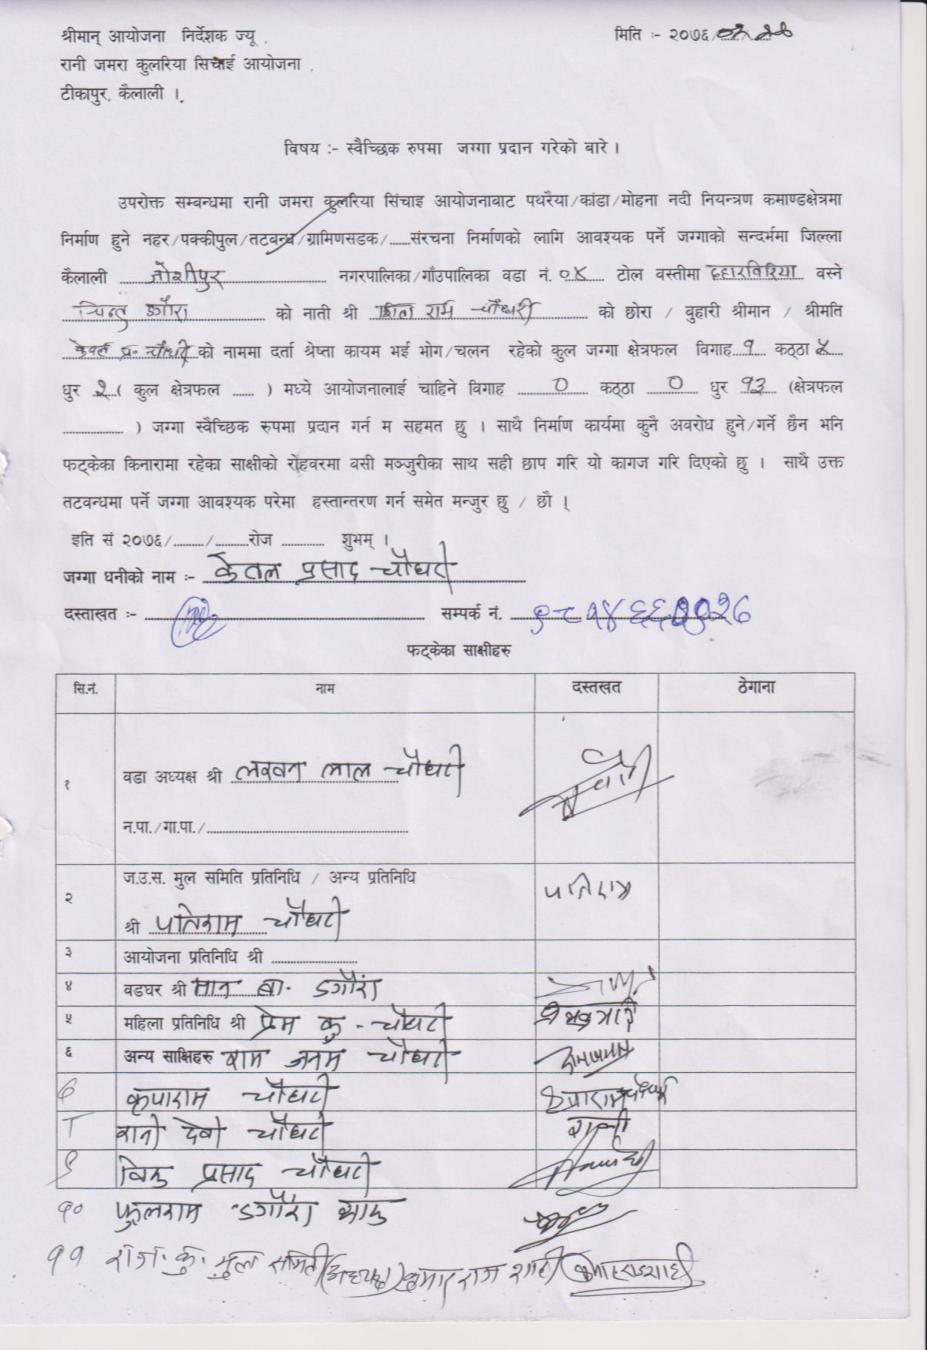 श्रीमान् आयोजना निर्देशक ज्यू , मिति :- २०७६/
रानी जमरा कुलरिया सिचाई आयोजना ,
टीकापुर, कैलाली ।
विषय :- स्वैच्छिक रुपमा जग्गा प्रदान गरेको बारे ।
उपरोक्त सम्बन्धमा रानी जमरा कुलरिया सिंचाइ आयोजनाबाट पथरैया/कांडा/मोहना नदी नियन्त्रण कमाण्डक्षेत्रमा
निर्माण हुने नहर/पक्कीपुल/तटबन्ध/ग्रामिणसडक/......संरचना निर्माणको लागि आवश्यक पर्ने जग्गाको सन्दर्भमा जिल्ला
कैलाली जोशीपुर नगरपालिका/गाँउपालिका वडा नं. ०५ टोल वस्तीमा वस्ने
को नाती श्री राम चौधरी को छोरा / बुहारी श्रीमान / श्रीमति
केवल प्र. चौधरी को नाममा दर्ता श्रेष्ता कायम भई भोग/चलन रहेको कुल जग्गा क्षेत्रफल विगाह १ कठ्ठा
धुर २ ( कुल क्षेत्रफल ...... ) मध्ये आयोजनालाई चाहिने विगाह ० कठ्ठा ० धुर १३ (क्षेत्रफल
............... ) जग्गा स्वैच्छिक रुपमा प्रदान गर्न म सहमत छु । साथै निर्माण कार्यमा कुनै अवरोध हुने/गर्ने छैन भनि
फट्केका किनारामा रहेका साक्षीको रोहवरमा बसी मञ्जुरीका साथ सही छाप गरि यो कागज गरि दिएको छु । साथै उक्त
तटवन्धमा पर्ने जग्गा आवश्यक परेमा हस्तान्तरण गर्न समेत मन्जुर छु / छौ ।
इति सं २०७६/......../.........रोज ........... शुभम् ।
जग्गा धनीको नाम :- केवल प्रसाद चौधरी
दस्ताखत :- सम्पर्क नं.
फट्केका साक्षीहरु
सि.नं. नाम दस्तखत ठेगाना
१ वडा अध्यक्ष श्री लखन लाल चौधरी
न.पा./गा.पा./
२ ज.उ.स. मुल समिति प्रतिनिधि / अन्य प्रतिनिधि
श्री पतिराम चौधरी पतिराम
३ आयोजना प्रतिनिधि श्री
४ वडघर श्री मान ब. डगौरा
५ महिला प्रतिनिधि श्री प्रेम कु. चौधरी
६ अन्य साक्षिहरु राम जनम चौधरी
७ कृपाराम चौधरी
८ रानी देवी चौधरी
९ प्रसाद चौधरी
१० फुलराम डगौरा
११ रा.ज.कु. मुल समिति (अध्यक्ष)